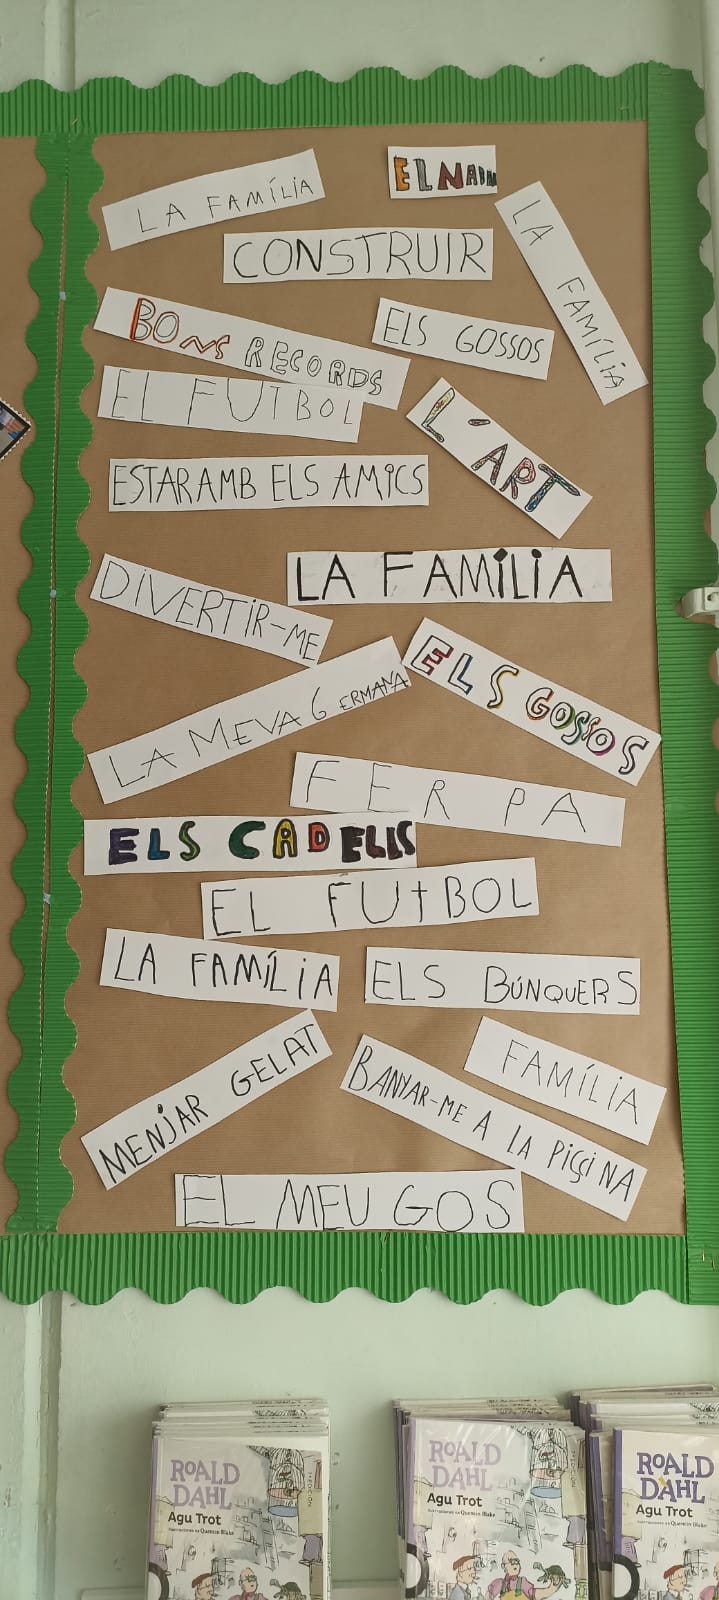 LA FAMÍLIA
EL NADAL
LA FAMÍLIA
CONSTRUIR
BONS RECORDS
ELS GOSSOS
EL FUTBOL
L'ART
ESTAR AMB ELS AMICS
LA FAMÍLIA
DIVERTIR-ME
ELS GOSSOS
LA MEVA GERMANA
FER PA
ELS CADELLS
EL FUTBOL
LA FAMÍLIA
ELS BÚNQUERS
MENJAR GELAT
FAMÍLIA
BANYAR-ME A LA PISCINA
EL MEU GOS
ROALD
DAHL
Agu Trot
Il·lustracions de Quentin Blake
ROALD
DAHL
Agu Trot
Il·lustracions de Quentin Blake
ROALD
DAHL
Agu Trot
Il·lustracions de Quentin Blake